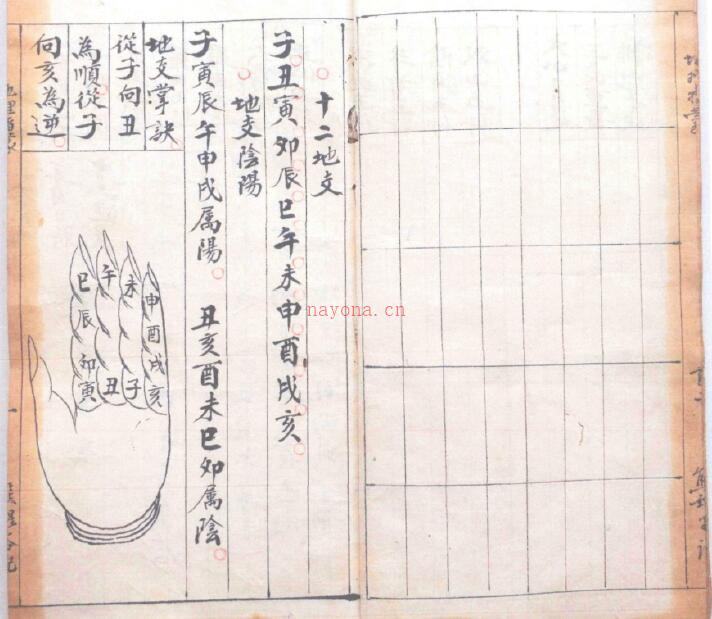 十二地支
子丑寅卯辰巳午未申酉戌亥
地支陰陽
子寅辰午申戌属陽 丑亥酉未巳卯属陰
地支掌訣
從子向丑
為順從子
向亥為逆
申酉戌亥
未子
午丑
巳辰卯寅
nayona.cn